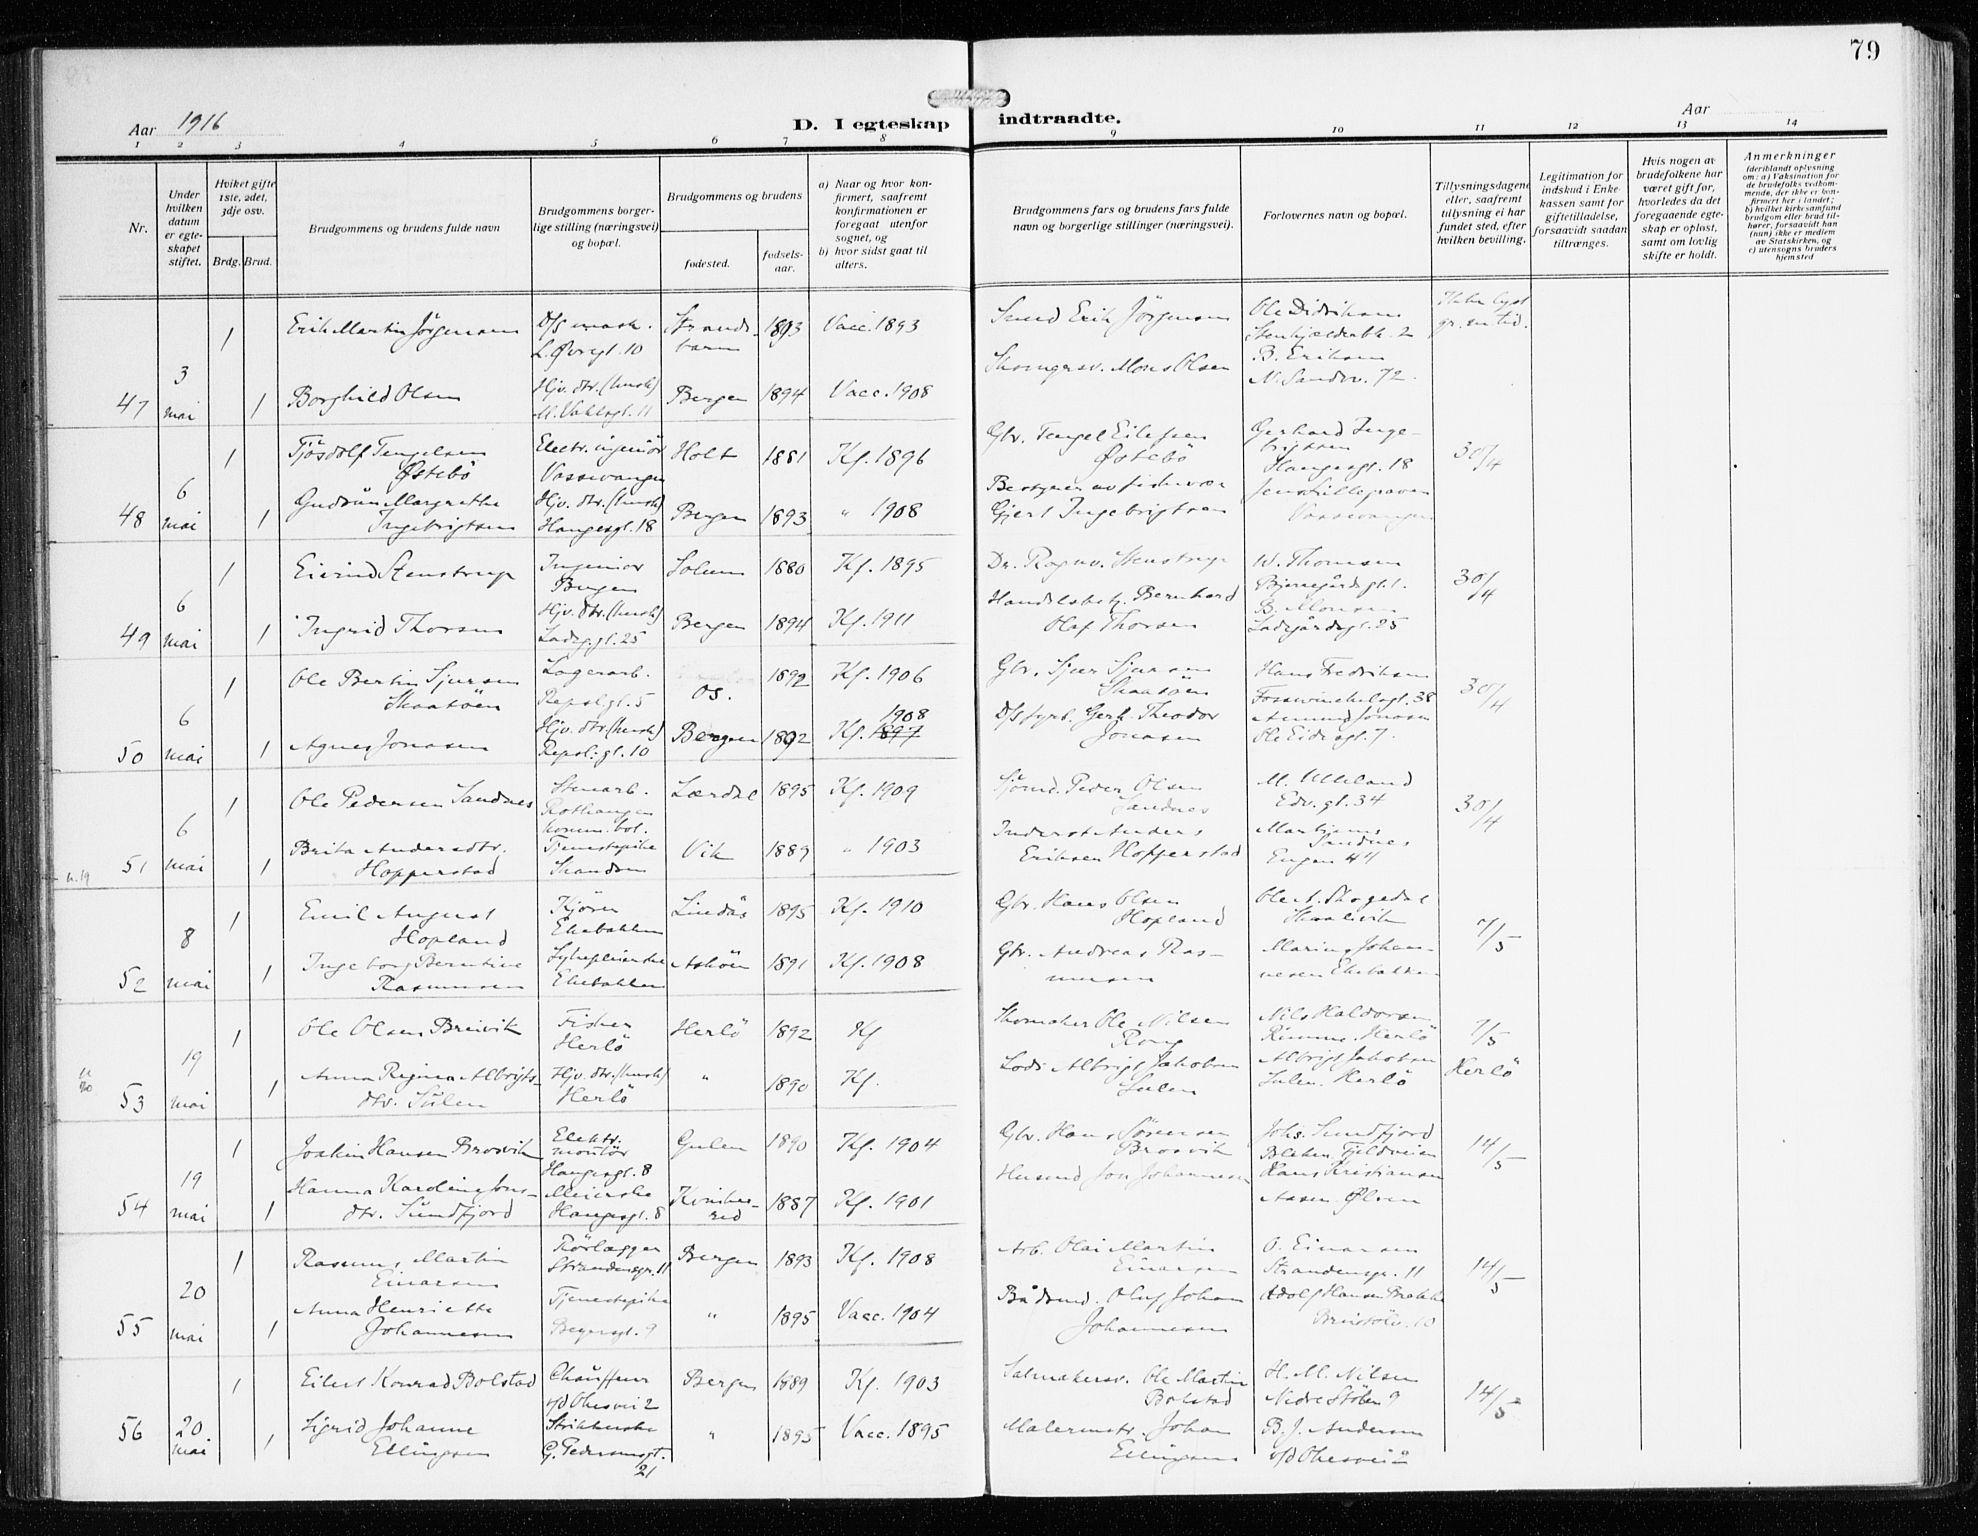 79
Aar 1916
D. I egteskap indtraadte.
Aar
1 2 3 4 5 6 7 8 9 10 11 12 13 14
Nr.
Under hvilken datum er egteskapet stiftet.
Hvilket gifte 1ste, 2det, 3dje osv.
Brdg. Brud.
Brudgommens og brudens fulde navn
Brudgommens borgerlige stilling (næringsvei) og bopæl.
Brudgommens og brudens
fødested.
fødselsaar.
a) Naar og hvor konfirmert, saafremt konfirmationen er foregaat utenfor sognet, og
b) hvor sidst gaat til alters.
Brudgommens fars og brudens fars fulde navn og borgerlige stillinger (næringsvei).
Forlovernes navn og bopæl.
Tillysningsdagene eller, saafremt tillysning ei har fundet sted, efter hvilken bevilling.
Legitimation for indskud i Enkekassen samt for giftetilladelse, forsaavidt saadan tiltrænges.
Hvis nogen av brudefolkene har været gift før, hvorledes da det foregaaende egteskap er opløst, samt om lovlig skifte er holdt.
Anmerkninger
(deriblandt oplysning om: a) Vaksination for de brudefolks vedkommende, der ikke er konfirmert her i landet; b) hvilket kirkesamfund brudgom eller brud tilhører, forsaavidt han (hun) ikke er medlem av Statskirken, og c) utensogns bruders hjemsted
47 3 mai
1 Erik Martin Jørgensen D/s mask. L. Øvregt. 10 Strandebarm 1893 Vacc. 1893 Smed Erik Jörgensen Ole Didriksen
1 Borghild Olsen Hjv. dtr. (husk) Bergen 1894 Vacc. 1908 Mons Olsen B. Eriksen N. Sandv. 72
48 6 mai
1 Tjösdolf Tengelsen Østebö Electr. ingeniör Vossevangen Holt 1881 Kf. 1896 Gbr. Tengel Eilefsen Østebö Gerhard Ingebrigtsen Haugesgt. 18 30/4
1 Gudrun Margrethe Ingebrigtsen Hjv. dtr. (husk) Haugesgt. 18 Bergen 1893 " 1908 Gjert Ingebrigtsen Jens Lillegraven Vossevangen
49 6 mai
1 Eivind Stenstrup Ingeniør Bergen Solum 1880 Kf. 1895 Dr. Ragnv. Stenstrup W. Thomsen Bjernegårdsgt. 1. 30/4
1 Ingrid Thorsen Hjv. dtr. (husk) Ladeg.gt. 25 Bergen 1894 Kf. 1911 Bernhard Olaf Thorsen B. Monsen Ladegårdsgt. 25
50 6 mai
1 Ole Bertin Sjursen Skaatöen Lagerarb. Repsl.gt. 5 Os. 1892 Kf. 1906 Gbr. Sjur Sjursen Skaatöen Hans Fredriksen Fosswinckelsgt. 38 30/4
1 Agnes Jonasen Hjv. dtr. (husk) Repsl.gt. 10 Bergen 1892 Kf. 1897 1908 D/s fyrb. Gerh. Theodor Jonasen Amund Jonasen Ole Eidesgt. 7.
51 6 mai
1 Ole Pedersen Sandnes Stenarb. Rothaugen komm. bol. Lærdal 1895 Kf. 1909 Sjömd. Peder Olsen Sandnes M. Ulleland Edv. gt. 34 30/4
1 Brita Andersdtr. Hopperstad Tjenestepike Vik 1889 " 1903 Inderst Anders Eriksen Hopperstad Sandnes Engen 44
52 8 mai
1 Emil August Hopland Kjörer Ekebakken Lindås 1895 Kf. 1910 Gbr. Hans Olsen Hopland 7/5
1 Ingeborg Berntine Rasmussen Sykepleierske Ekebakken Askøen 1891 Kf. 1908 Gbr. Andreas Rasmussen Johannesen Ekebakken
53 19 mai
1 Ole Olsen Breivik Fisker Herlö Herlö 1892 Kf Skomaker Ole Nilsen Rong Nils Haldorsen Herlö 7/5
1 Anna Regina Albrigtsdtr. Sulen Hjv. dtr. (husk) Herlö " 1890 Kf. Lods Albrigt Jakobsen Sulen Albrigt Jakobsen Sulen. Herlö Herlö
54 19 mai
1 Joakim Hansen Brosvik Elektr. montör Haugesgt. 8 Gulen 1890 Kf. 1904 Gbr. Hans Sörensen Brosvik Johs. Sundfjord 14/5
1 Hanna Kardine Jonsdtr. Sundfjord Meierske Haugesgt. 8 Kvinherred 1887 Kf. 1901 Husmd Jon Johannesen Hans Kristiansen Aasen. Ølven
55 20 mai
1 Rasmus Martin Einarsen Rörlægger Strandensgr. 11 Bergen 1893 Kf. 1908 Arb. Olai Martin Einarsen O. Einarsen Strandensgr. 11 14/5
1 Anna Henriette Johannesen Tjenestepike " 1895 Vacc. 1904 Olaf Johan Johannesen Adolf Hansen
56 20. mai
1 Eilert Konrad Bolstad Chåuffeur Bergen 1889 Kf. 1903 Salmakersv. Ole Martin Bolstad H. M. Nilsen Nedre Stölen 9 14/5
1 Sigrid Johanne Ellingsen Strikkerske G. Pedersensgt. 21 " 1895 Vacc. 1895 Malermstr. Johan Ellingsen B. J. Andersen